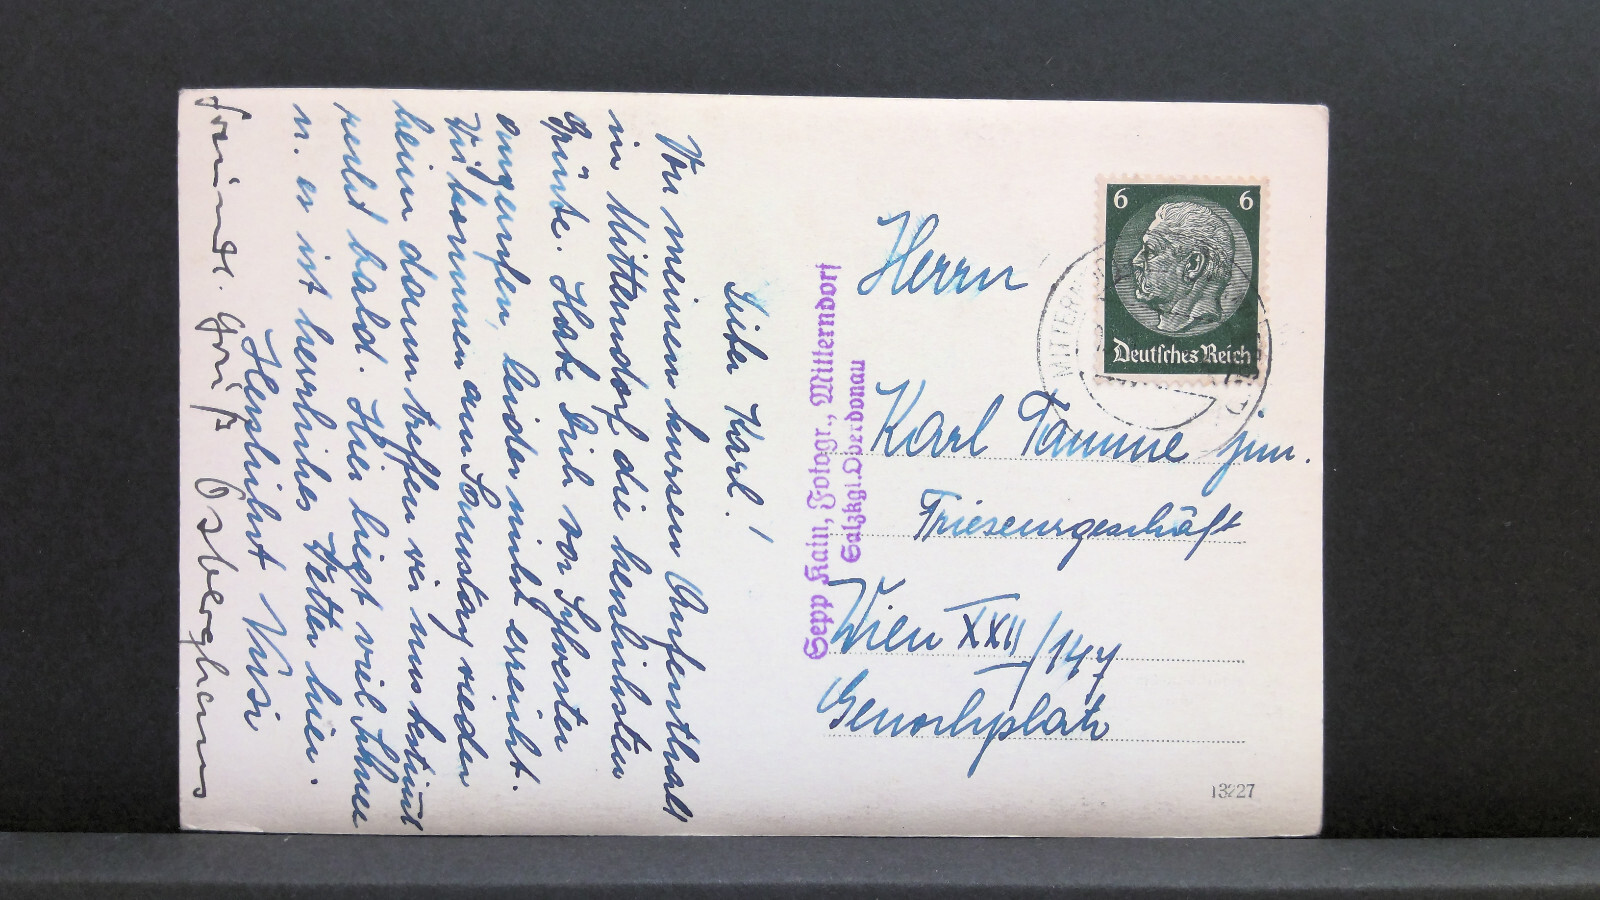 Lieber Karl!
Von meinem kurzen Aufenthalt
in Mitterndorf die herzlichsten
Grüße. Habe Dich vor Sylvester
angerufen, leider nicht erreicht.
Wir kommen am Samstag wieder
heim dann treffen wir uns bestimmt
recht bald. Hier liegt viel Schnee
u. es ist herrliches Wetter hier.
Herzlichst
6 6
Deutsches Reich
MITTERN
Herrn
Karl Tamme jun.
Friseurgeschäft
Wien XXII/147
Genochplatz
Sepp Kain, Fotogr., Mitterndorf
Salzkgt. Oberdonau
13227